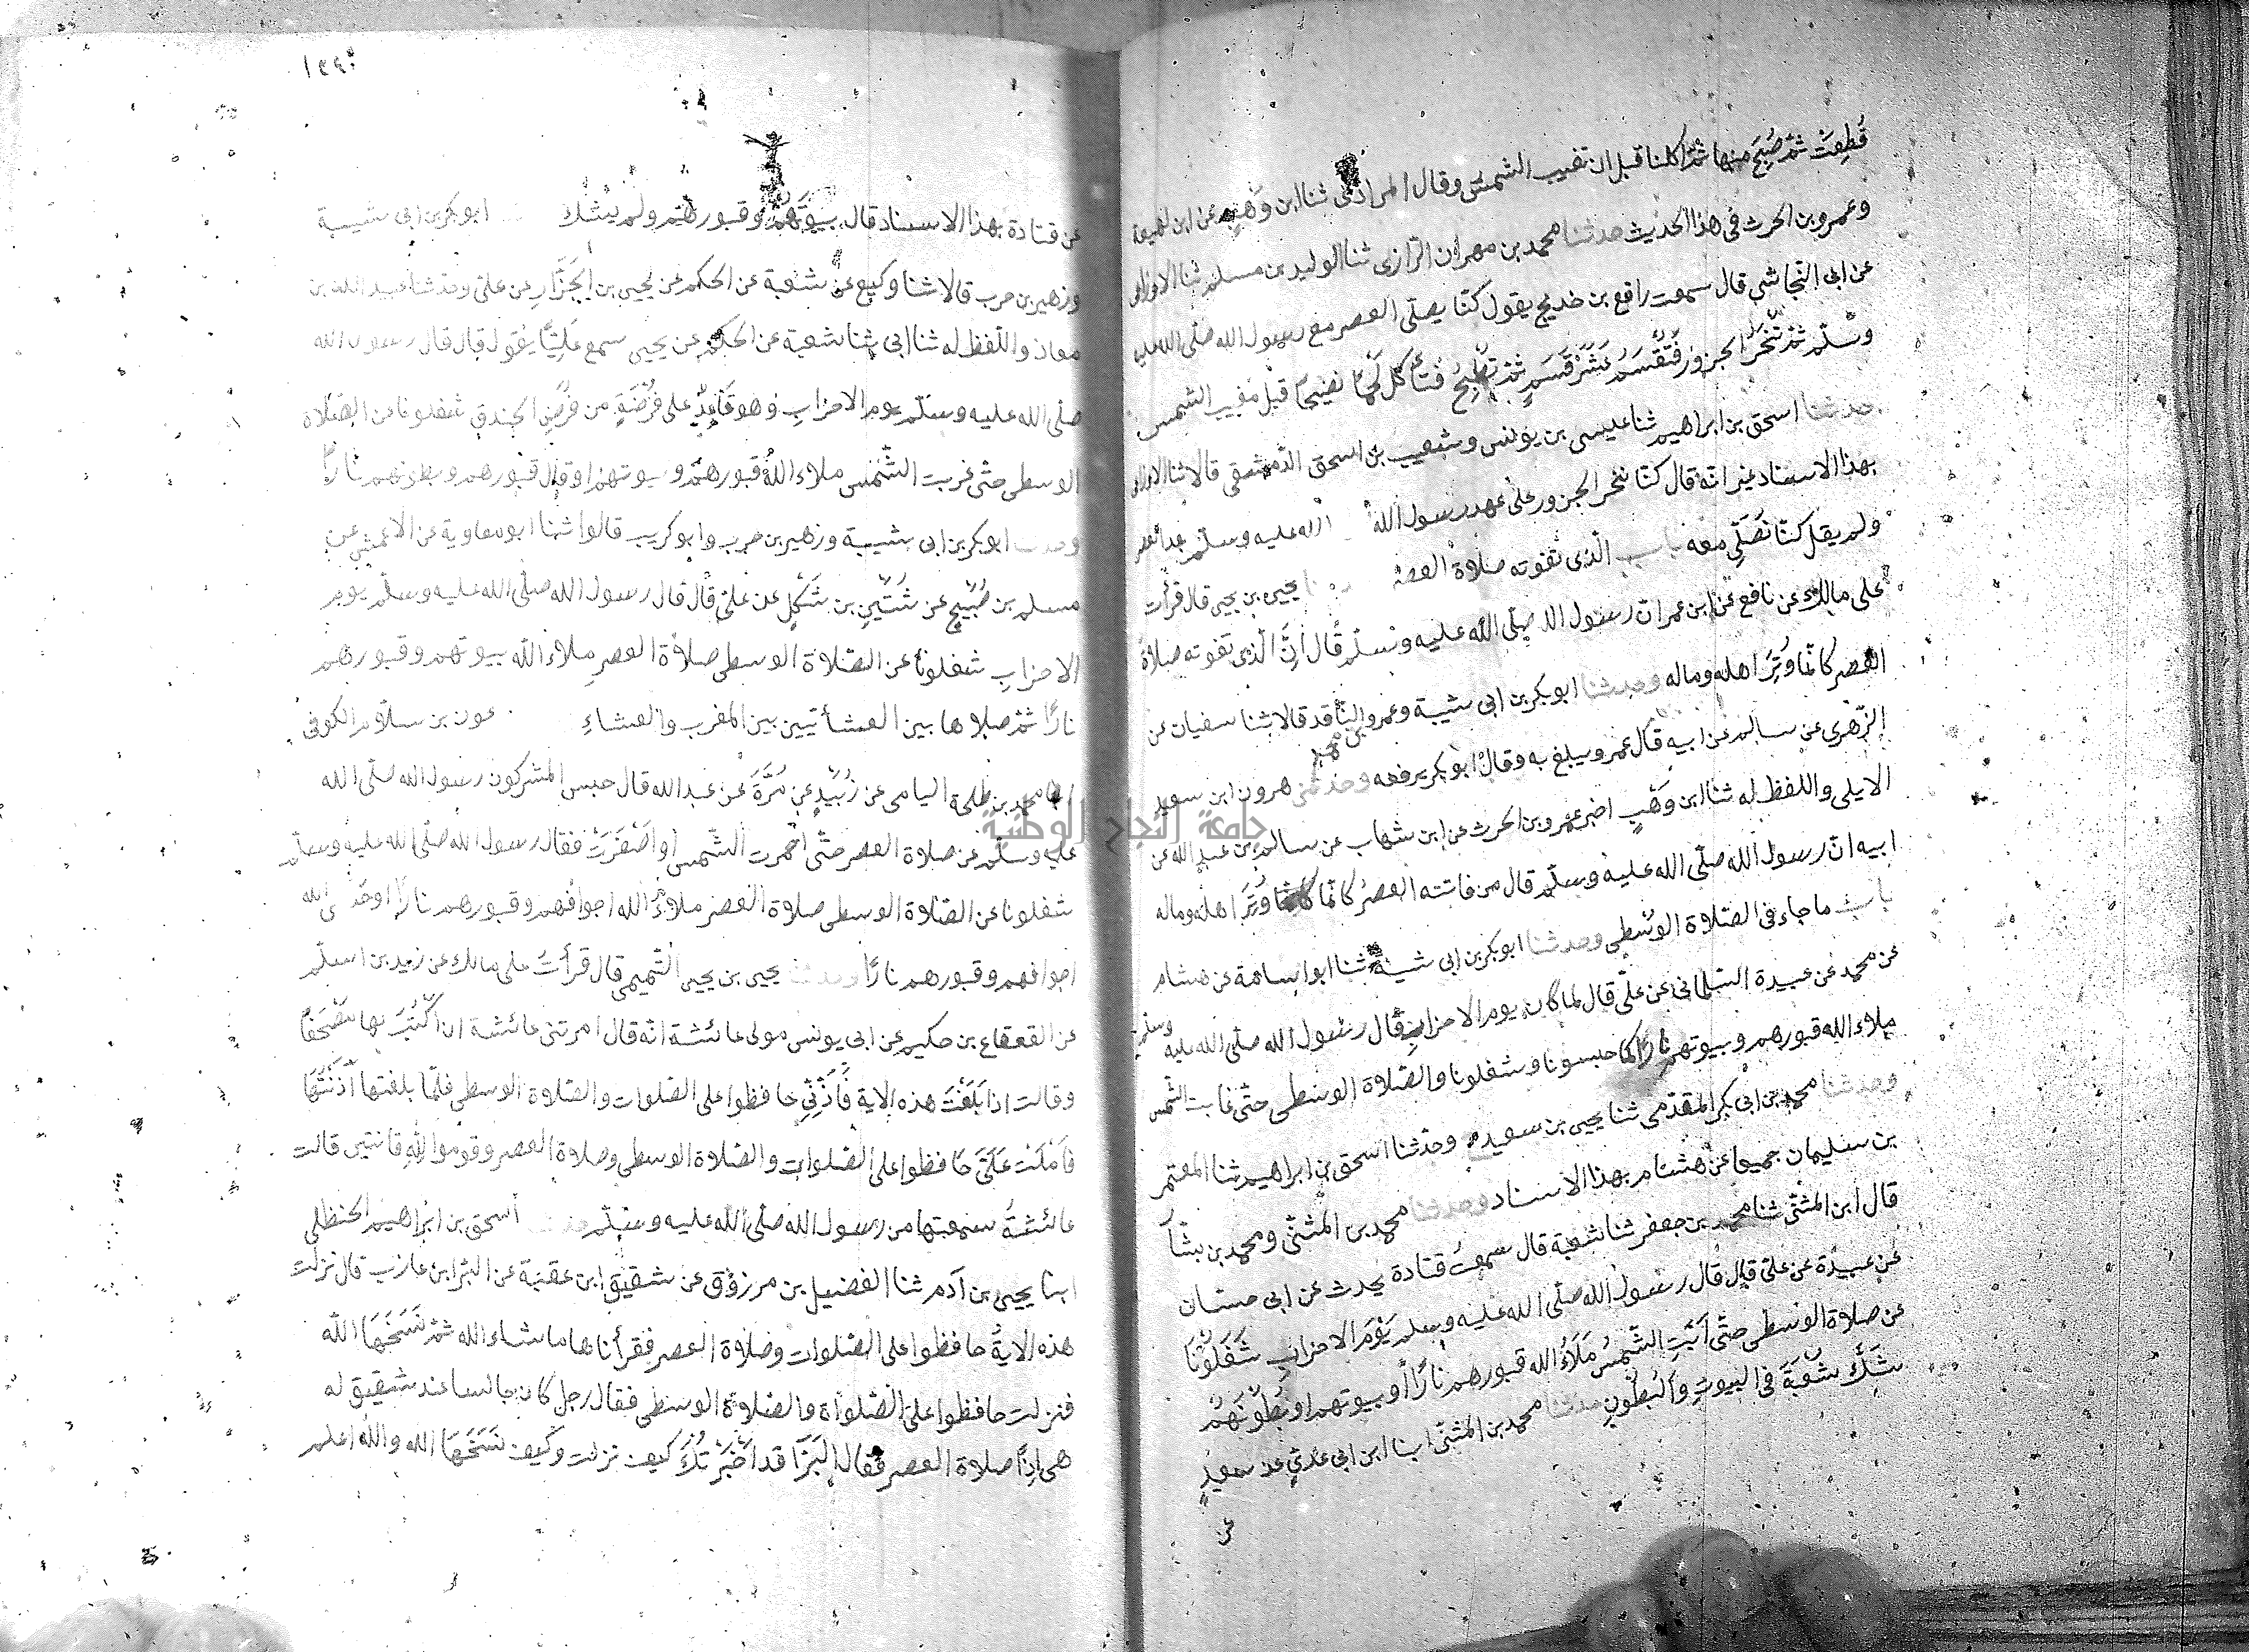 قُطِعَتْ ثمّ طُبِخَ منها ثمّ اكلنا قبل ان تغيب الشمس وقال المرادى ثنا ابن وَهْبٍ عن ابن لهيعة
وعمرو بن الحرث فى هذا الحديث حدثنا محمد بن مهران الرّازى ثنا الوليد بن مسلم ثنا الاوزاعى
عن ابى النّجاشى قال سمعت رافع بن خديج يقول كنّا نصلّى العصر مع رسول الله صلّى الله عليه
وسلّم ثمّ تُنْحَرُ الجزور فَتُقْسَمُ عَشَرَ قِسَمٍ ثمّ تُطْبَخُ فنأكل لحمًا نضيجًا قبل مغيب الشمس
حدثنا اسحق بن ابراهيم ثنا عيسى بن يونس وشعيب بن اسحق الدّمشقى قالا ثنا الاوزاعى
بهذا الاسناد غير انّه قال كنّا ننحر الجزور على عهد رسول الله الله عليه وسلّم بعد العصر
ولم يقل كنّا نُصَلّى معه باب الّذى تفوته صلاة العصر يحيى بن يحيى قال قرأت
على مالك عن نافع عن ابن عمر ان رسول الله صلّى الله عليه وسلّم قال انّ الّذى تفوته صلاة
العصر كانّما وُتِرَ اهله وماله وحدثنا ابو بكر بن ابى شيبة وعمرو النّاقد قالا ثنا سفيان عن
الزّهرى عن سالم عن ابيه قال عمرو يبلغ به وقال ابو بكر يرفعه وحدثنى هرون ابن سعيد
الايلى واللفظ له ثنا ابن وَهْبٍ اخبر عمرو بن الحرث عن ابن شهاب عن سالم بن عبد الله عن
ابيه انّ رسول الله صلّى الله عليه وسلّم قال من فاتته العصر كانّما وُتِرَ اهله وماله
باب ما جاء فى الصّلاة الوُسْطى وحدثنا ابو بكر بن ابى شيبة ثنا ابو اسامة عن هشام
عن محمد عن عبيدة السّلمانى عن علىّ قال لما كان يوم الاحزاب قال رسول الله صلّى الله عليه وسلم
ملاء الله قبورهم وبيوتهم نارًا كما حبسونا وشغلونا والصّلاة الوسطى حتّى غابت الشّمس
وحدثنا محمد بن ابى بكر المقدّمى ثنا يحيى بن سعيد وحدّثنا اسحق بن ابراهيم ثنا المعتمر
بن سليمان جميعا عن هشام بهذا الاسناد وحدثنا محمد بن المثنّى ومحمد بن بشار
قال ابن المثنّى ثنا محمد بن جعفر ثنا شعبة قال سمعتُ قتادة يحدث عن ابى حسّان
عن عبيدة عن علىّ قال قال رسول الله صلّى الله عليه وسلم يَوْمَ الاحزاب شَغَلُونَا
عن صلاة الوسطى حتّى آبَتِ الشّمسُ مَلَاءَ الله قبورهم نارًا أو بيوتهم او بُطُونَهُمْ
شَكَّ شُعْبَةُ فى البيوتِ والبُطُونِ حدثنا محمد بن المثنّى ابنا ابن ابى عدىّ عن سعيدٍ
عن
١٣٤
عن قتادة بهذا الاسناد قال بيوتهم وقبورهم ولم يشكّ ابو بكر بن ابى شيبة
وزهير بن حرب قالا ثنا وكيع عن شعبة عن الحكم عن يحيى بن الجَزّارِ عن علىّ وحدثنا عبيد الله بن
معاذ واللّفظ له ثنا ابى ثنا شعبة عن الحكم عن يحيى سمع عَلِيًّا يقول قال قال رسول الله
صلّى الله عليه وسلّم يوم الاحزابِ وهو قَاعِدٌ على فُرْضَةٍ من فُرَضِ الخندق شغلونا عن الصّلاة
الوسطى حتّى غربت الشّمس ملاء اللهُ قبورهم وبيوتهم او قال قبورهم وبطونهم نارًا
وحدثنا ابو بكر بن ابى شيبة وزهير بن حرب وابو كريب قالوا ثنا ابو معاوية عن الاعمش عن
مسلم بن صُبَيْحٍ عن شُتَيْرِ بن شَكَلٍ عن علىّ قال قال رسول الله صلّى الله عليه وسلّم يوم
الاحزابِ شغلونا عن الصّلاة الوسطى صلاة العصرِ ملاء الله بيوتهم وقبورهم
نارًا ثمّ صلاها بين العشائين بين المغرب والعشاءِ عون بن سلّام الكوفى
محمد بن طلحة اليامى عن زُبَيْدٍ عن مُرَّةَ عن عبد الله قال حبس المشركون رسول الله صلّى الله
عليه وسلّم عن صلاة العصر حتّى احمرت الشّمس أو اصْفَرَّتْ فقال رسول الله صلّى الله عليه وسلّم
شغلونا عن الصّلاة الوسطى صلاة العصر ملاءَ الله اجوافهم وقبورهم نارًا او حَشَى الله
اجوافهم وقبورهم نارًا وحدثنا يحيى بن يحيى التّميمى قال قرأتُ على مالك عن زيد بن اسلم
عن القعقاع بن حكيم عن ابى يونس مولى عائشة انّه قال امرتنى عائشة ان اكْتُبَ بها مُصْحَفًا
وقالت اذا بَلَغْتَ هذه الاية فَآذِنِّى حافظوا على الصّلوات والصّلاة الوسطى فلمّا بلغتها آذَنْتُهَا
فَأَمْلَتْ عَلَىَّ حافظوا على الصّلوات والصّلاة الوسطى وصلاة العصر وقوموا للهِ قانتين قالت
عائشةُ سمعتها من رسول الله صلّى الله عليه وسلّم حدثنا اسحق بن ابراهيم الحنظلى
ابنا يحيى بن آدم ثنا الفضيل بن مرزوق عن شقيق ابن عقبة عن البرا بن عازب قال نزلت
هذه الايةُ حافظوا على الصّلوات وصلاة العصر فقرأناها ما شاء الله ثمّ نَسَخَهَا الله
فنزلت حافظوا على الصّلواة والصّلاة الوسطى فقال رجل كان جالسا عند شقيق له
هى إذًا صلاة العصر فقال البَرَا قد اَخْبَرْتُكَ كيف نزلت وكيف نَسَخَهَا الله والله اعلم
جامعة النجاح الوطنية